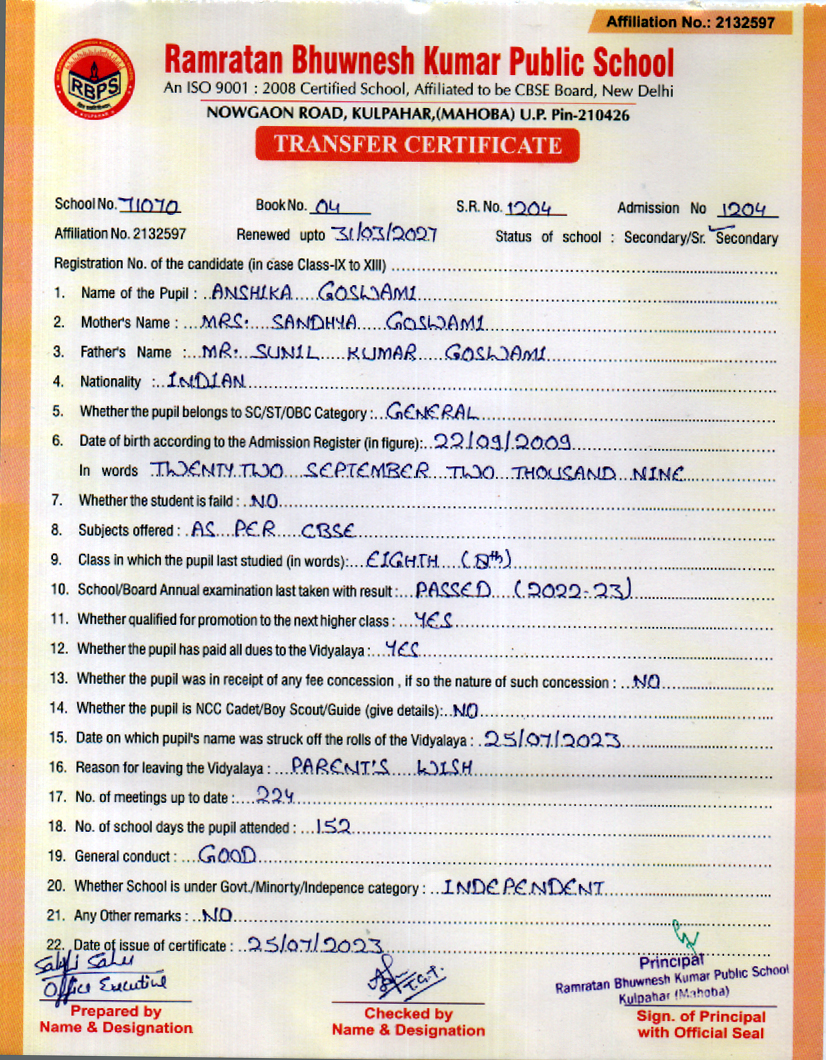 Affiliation No.: 2132597
RBPS
KULPAHAR
Ramratan Bhuwnesh Kumar Public School
An ISO 9001 : 2008 Certified School, Affiliated to be CBSE Board, New Delhi
NOWGAON ROAD, KULPAHAR,(MAHOBA) U.P. Pin-210426
TRANSFER CERTIFICATE
School No. 71070 Book No. 04 S.R. No. 1204 Admission No 1204
Affiliation No. 2132597 Renewed upto 31/03/2027 Status of school : Secondary/Sr. Secondary
Registration No. of the candidate (in case Class-IX to XIII)
1. Name of the Pupil : ANSHIKA GOSWAMI
2. Mother's Name : MRS. SANDHYA GOSWAMI
3. Father's Name : MR. SUNIL KUMAR GOSWAMI
4. Nationality : INDIAN
5. Whether the pupil belongs to SC/ST/OBC Category : GENERAL
6. Date of birth according to the Admission Register (in figure): 22/09/2009
In words TWENTY TWO SEPTEMBER TWO THOUSAND NINE
7. Whether the student is faild : NO
8. Subjects offered : AS PER CBSE
9. Class in which the pupil last studied (in words): EIGHTH (8th)
10. School/Board Annual examination last taken with result : PASSED (2022-23)
11. Whether qualified for promotion to the next higher class : YES
12. Whether the pupil has paid all dues to the Vidyalaya : YES
13. Whether the pupil was in receipt of any fee concession , if so the nature of such concession : NO
14. Whether the pupil is NCC Cadet/Boy Scout/Guide (give details): NO
15. Date on which pupil's name was struck off the rolls of the Vidyalaya : 25/07/2023
16. Reason for leaving the Vidyalaya : PARENT'S WISH
17. No. of meetings up to date : 224
18. No. of school days the pupil attended : 152
19. General conduct : GOOD
20. Whether School is under Govt./Minorty/Indepence category : INDEPENDENT
21. Any Other remarks : NO
22. Date of issue of certificate : 25/07/2023
Sahu
Office Executive
Prepared by
Name & Designation
T.G.T.
Checked by
Name & Designation
Principal
Ramratan Bhuwnesh Kumar Public School
Kulpahar (Mahoba)
Sign. of Principal
with Official Seal